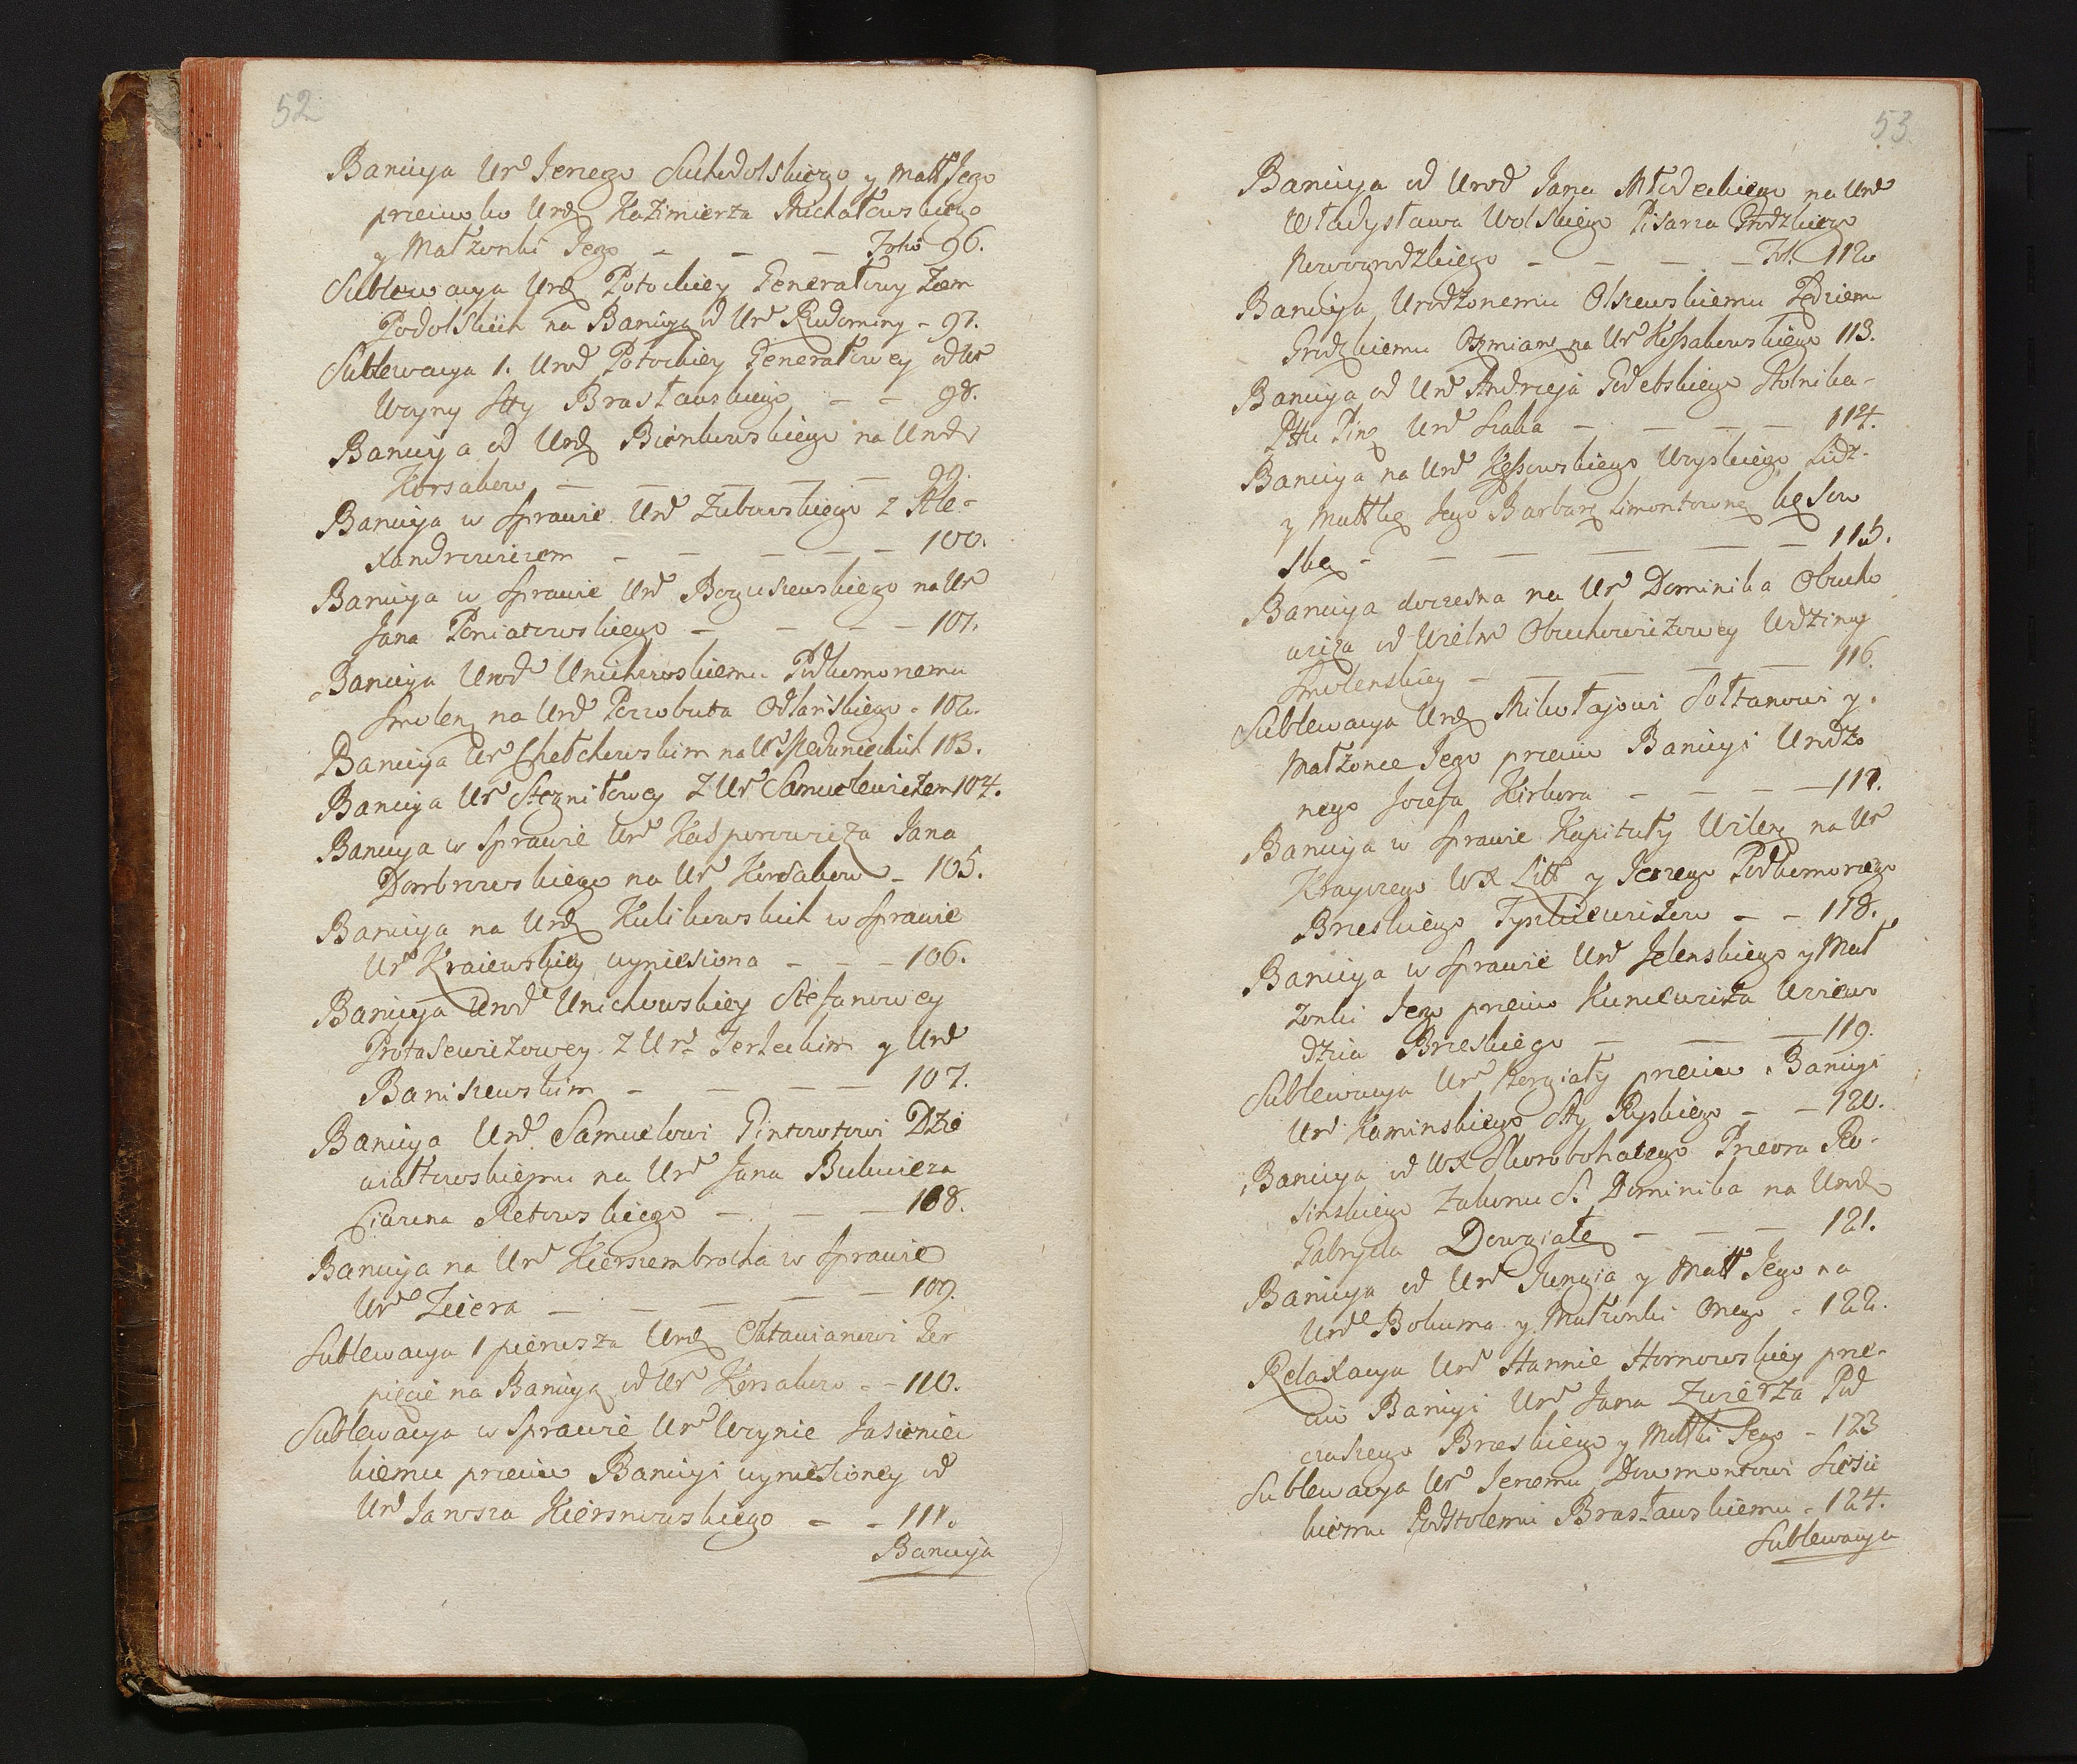 52
Banicya Ur Jerzego Suchodolskiego y Małł Jego
przeciwko Urd Kazimierza Michałowskiego
y Małżonki Jego _ _ _ Folio 96.
Sublewacya Urd Potockiey Generałowy Ziem
Podolskich na Banicyą od Urd Rudominy - 97.
Sublewacya 1. Urod Potockiey Generałowey od Ur
Woyny Stty Brasławskiego _ _ 98.
Banicya od Urd Bienkowskiego na Urod
Korsakow _ _ _ _ 99.
Banicya w Sprawie Urd Zubowskiego z Ale-
xandrowiczem _ _ _ _ _ 100.
Banicya w Sprawie Urd Boguszewskiego na Ur
Jana Poniatowskiego _ _ _ _ 101.
Banicya Urod Unichowskiemu Podkomorzemu
Smolen na Urd Odlanskiego - 102.
Banicya Ur Chełchowskim na Ur 103.
Banicya Ur Stegniłowey z Ur Samuelewiczem 104.
Banicya w Sprawie Urd Kasperowicza Jana
Dombrowskiego na Ur Korsakow _ 105.
Banicya na Urd Kulikowskich w Sprawie
Ur Kraiewskiey wyniesiona _ _ _ 106.
Banicya Urod Unichowskiey Stefanowey
Protasewiczowey z Urd Terleckim y Urd
Baniszewskim _ _ _ _ 107.
Banicya Urd Samuelowi Gintowtowi Dzie
wiałtowskiemu na Urd Jana Bukwicza
Ciarena Retowskiego _ _ _ 108.
Banicya na Urd Kierszembrocha w Sprawie
Urd Zeiera _ _ _ _ _ 109.
Sublewacya 1 pierwsza Urd Oktawianowi Jer
piecie na Banicyą od Ur Korsakow - - 110.
Sublewacya w Sprawie Urd Woynie Jasieniec
kiemu przeciw Banicyi wyniesioney od
Urd Jarosza Kiersnowskiego _ _ 111.
Banicya
53
Banicya od Urod Jana Młodeckiego na Urd
Władysława Wolskiego Pisarza Grodzkiego
Nowogrodzkiego _ _ _ _ Fol. 112
Banicya Urodzonemu Olszewskiemu Sędziem
Grodzkiemu Oszmian na Ur Kossakowskiego 113.
Banicya od Urd Andrzeja Godebskiego Stolnika
Pttu Pin Urd Szaka _ _ _ _ 114.
Banicya na Urd Kęssowskiego Woyskiego Lidz-
y Małłkę Jego Barbarę Limontownę kęsow
ską - _ _ _ _ _ 115.
Banicya doczesna na Urd Dominika Obucho
wicza od Wielm Obuchowiczowey Wdziney
Smolenskiey _ _ _ _ 116.
Sublewacya Urd Mikołajowi Sołtanowi y
Małżonce Jego przeciw Banicyi Urodzo
nego Jozefa Kirkora _ _ _ _ 117.
Banicya w Sprawie Kapituły Wilen na Ur
Krayczego WX Litt y Jerzego Podkomorzego
Brzeskiego Tyszkiewiczow _ _ 118.
Banicya w Sprawie Urd Jelenskiego y Mał
żonki Jego przeciw Kuncewicza Wiiewo
dzica Brzeskiego _ _ _ 119.
Sublewacya Urd przeciw Banicyi
Urd Kaminskiego Stty Ryskiego _ _ 120.
Banicya od WX Skorobohatego Przeora Ro-
sinskiego Zakonu S. Dominika na Urod
Gabryela Dowgiałę _ _ _ 121.
Banicya od Urd y Małł Jego na
Urd Bokuma y Małżonki onego - 122.
Relaxacya Urd Hannie Hornowskiey prze-
ciw Banicyi Urd Jana Zwierza Pod
czaszego Brzeskiego y Małłki Jego - 123
Sublewacya Ur Jerzemu Dowmontowi Siesic
kiemu Podstolemu Brasławskiemu - 124.
Sublewacya